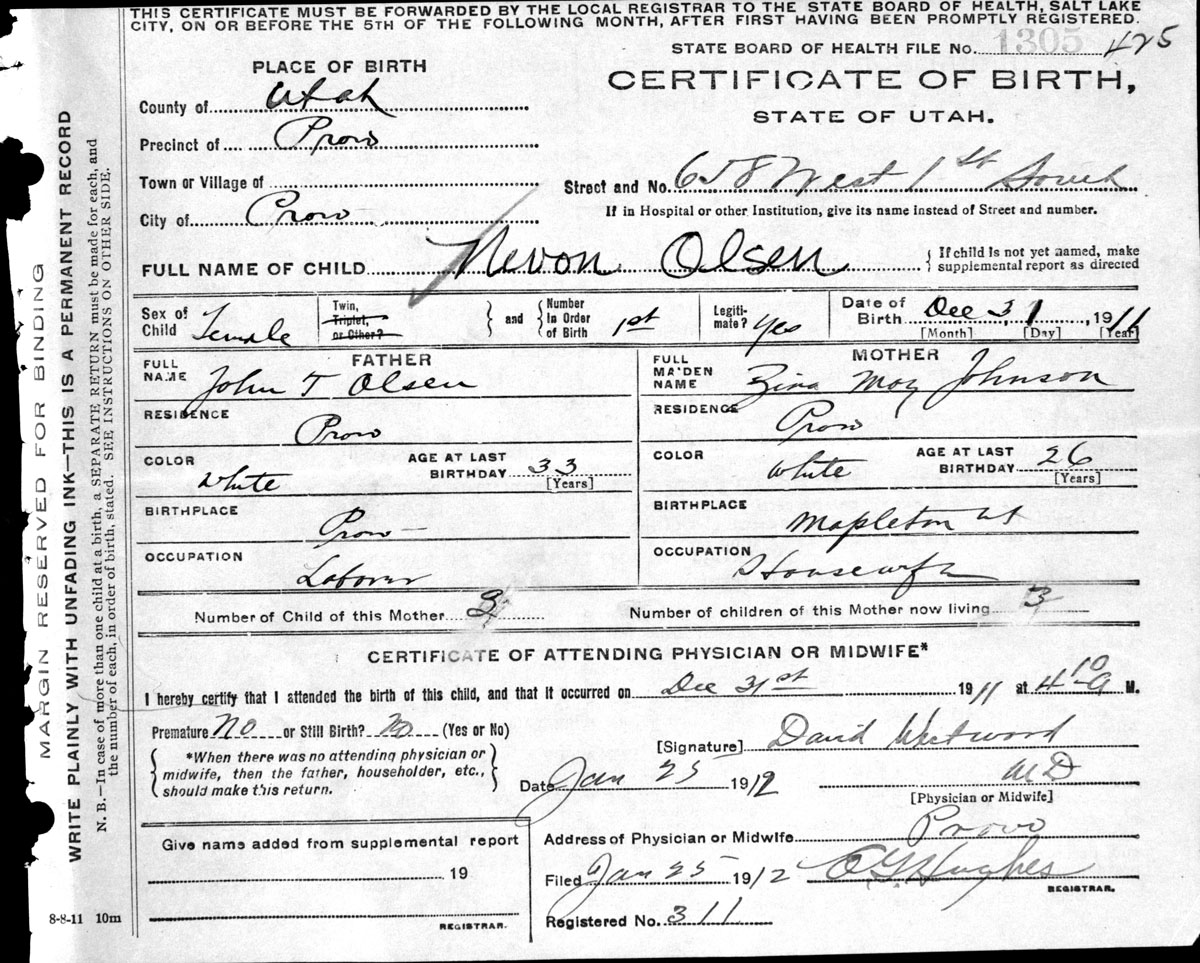 THIS CERTIFICATE MUST BE FORWARDED BY THE LOCAL REGISTRAR TO THE STATE BOARD OF HEALTH, SALT LAKE
CITY, ON OR BEFORE THE 5TH OF THE FOLLOWING MONTH, AFTER FIRST HAVING BEEN PROMPTLY REGISTERED.
STATE BOARD OF HEALTH FILE No. 1305 425
PLACE OF BIRTH
CERTIFICATE OF BIRTH,
STATE OF UTAH.
County of Utah
Precinct of Provo
Town or Village of
Street and No. 658 West 1st South
City of Provo
If in Hospital or other Institution, give its name instead of Street and number.
FULL NAME OF CHILD Nevon Olsen { If child is not yet named, make
supplemental report as directed
Sex of Child Female
Twin, Triplet, or Other?
and
Number In Order of Birth 1st
Legiti- mate? Yes
Date of Birth Dec 31, 1911
[Month] [Day] [Year]
FATHER
FULL NAME John T Olsen
RESIDENCE Provo
COLOR White
AGE AT LAST BIRTHDAY 33
[Years]
BIRTHPLACE Provo
OCCUPATION Laborer
MOTHER
FULL MAIDEN NAME Zina May Johnson
RESIDENCE Provo
COLOR White
AGE AT LAST BIRTHDAY 26
[Years]
BIRTHPLACE Mapleton Ut
OCCUPATION Housewife
Number of Child of this Mother 3
Number of children of this Mother now living 3
CERTIFICATE OF ATTENDING PHYSICIAN OR MIDWIFE*
I hereby certify that I attended the birth of this child, and that it occurred on Dec 31st 1911 at 4 10 a M.
Premature No or Still Birth? No (Yes or No)
*When there was no attending physician or
midwife, then the father, householder, etc.,
should make this return.
[Signature] David Westwood
Date Jan 25 1912 MD
[Physician or Midwife]
Give name added from supplemental report
19
REGISTRAR.
Address of Physician or Midwife Provo
Filed Jan 25 1912 O Y Hughes
REGISTRAR.
Registered No. 311
8-8-11 10m
MARGIN RESERVED FOR BINDING
WRITE PLAINLY WITH UNFADING INK—THIS IS A PERMANENT RECORD
N. B.—In case of more than one child at a birth, a SEPARATE RETURN must be made for each, and
the number of each, in order of birth, stated. SEE INSTRUCTIONS ON OTHER SIDE.